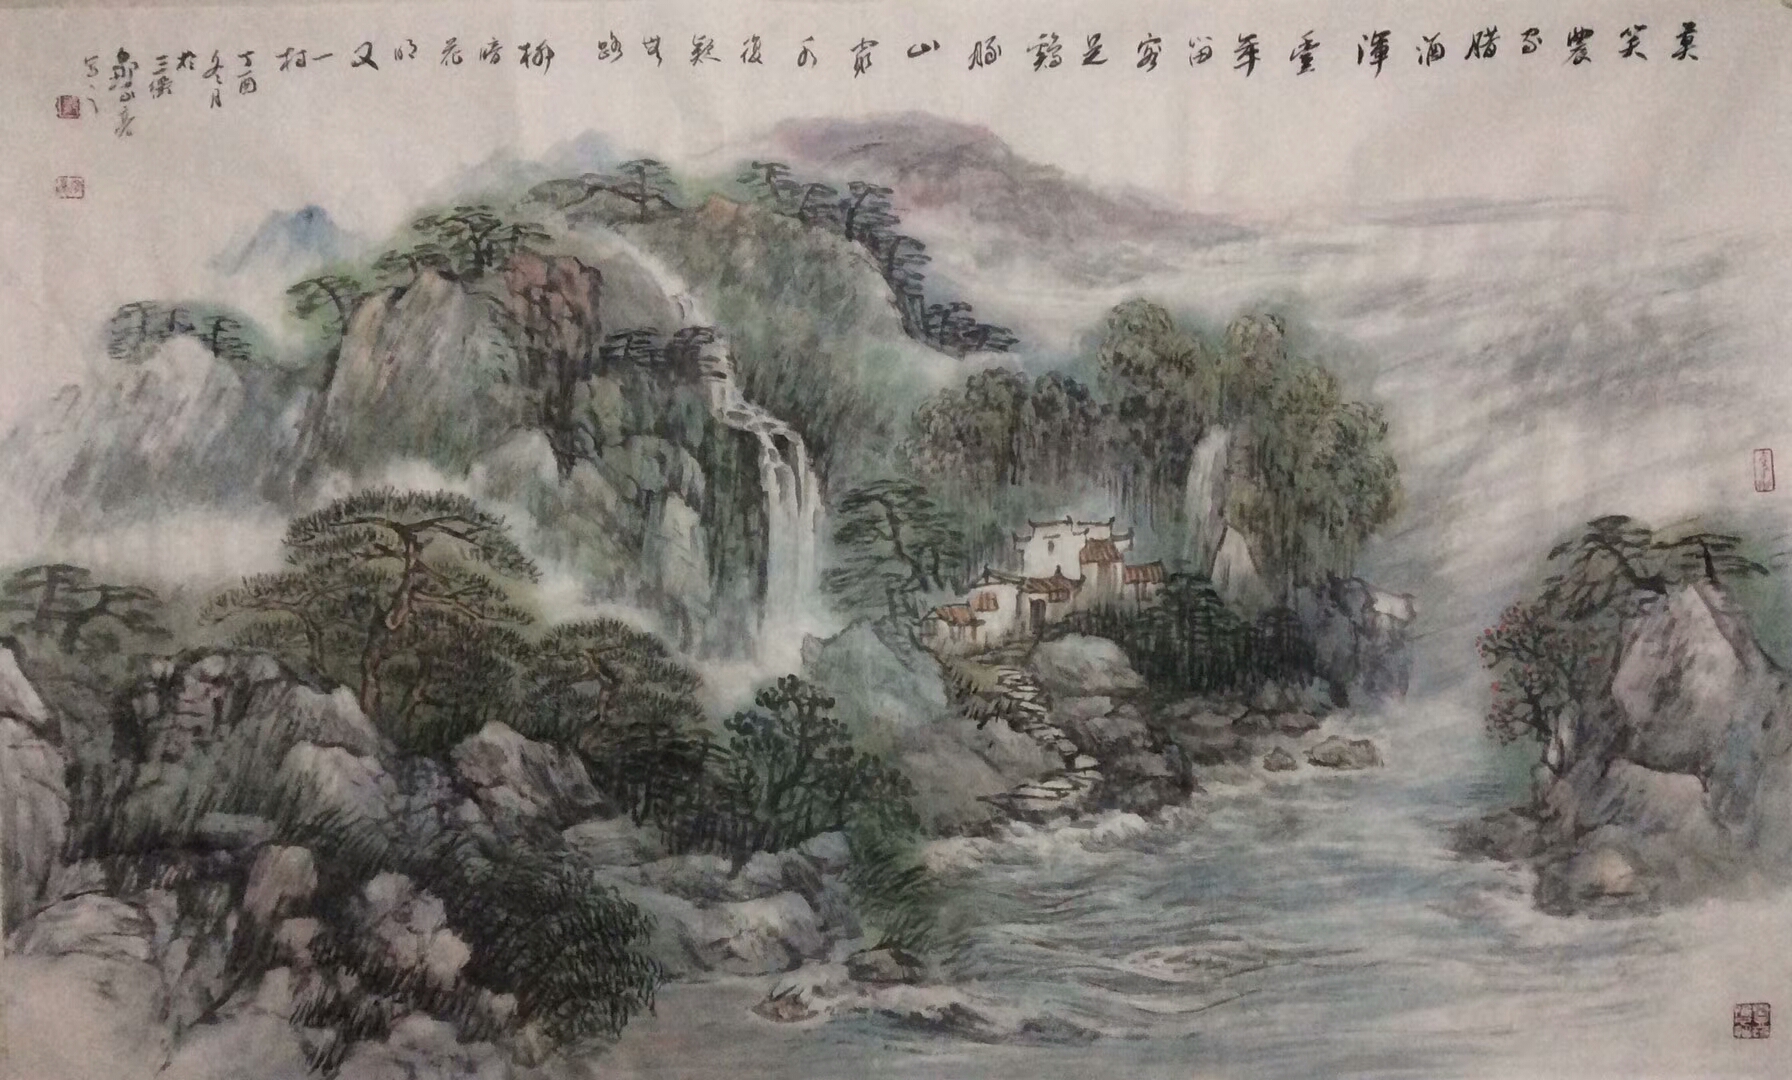 莫笑農家腊酒渾豐年留客足鷄豚山窮水復疑無路柳暗花明又一村
丁酉
冬月
於
三峽
写之